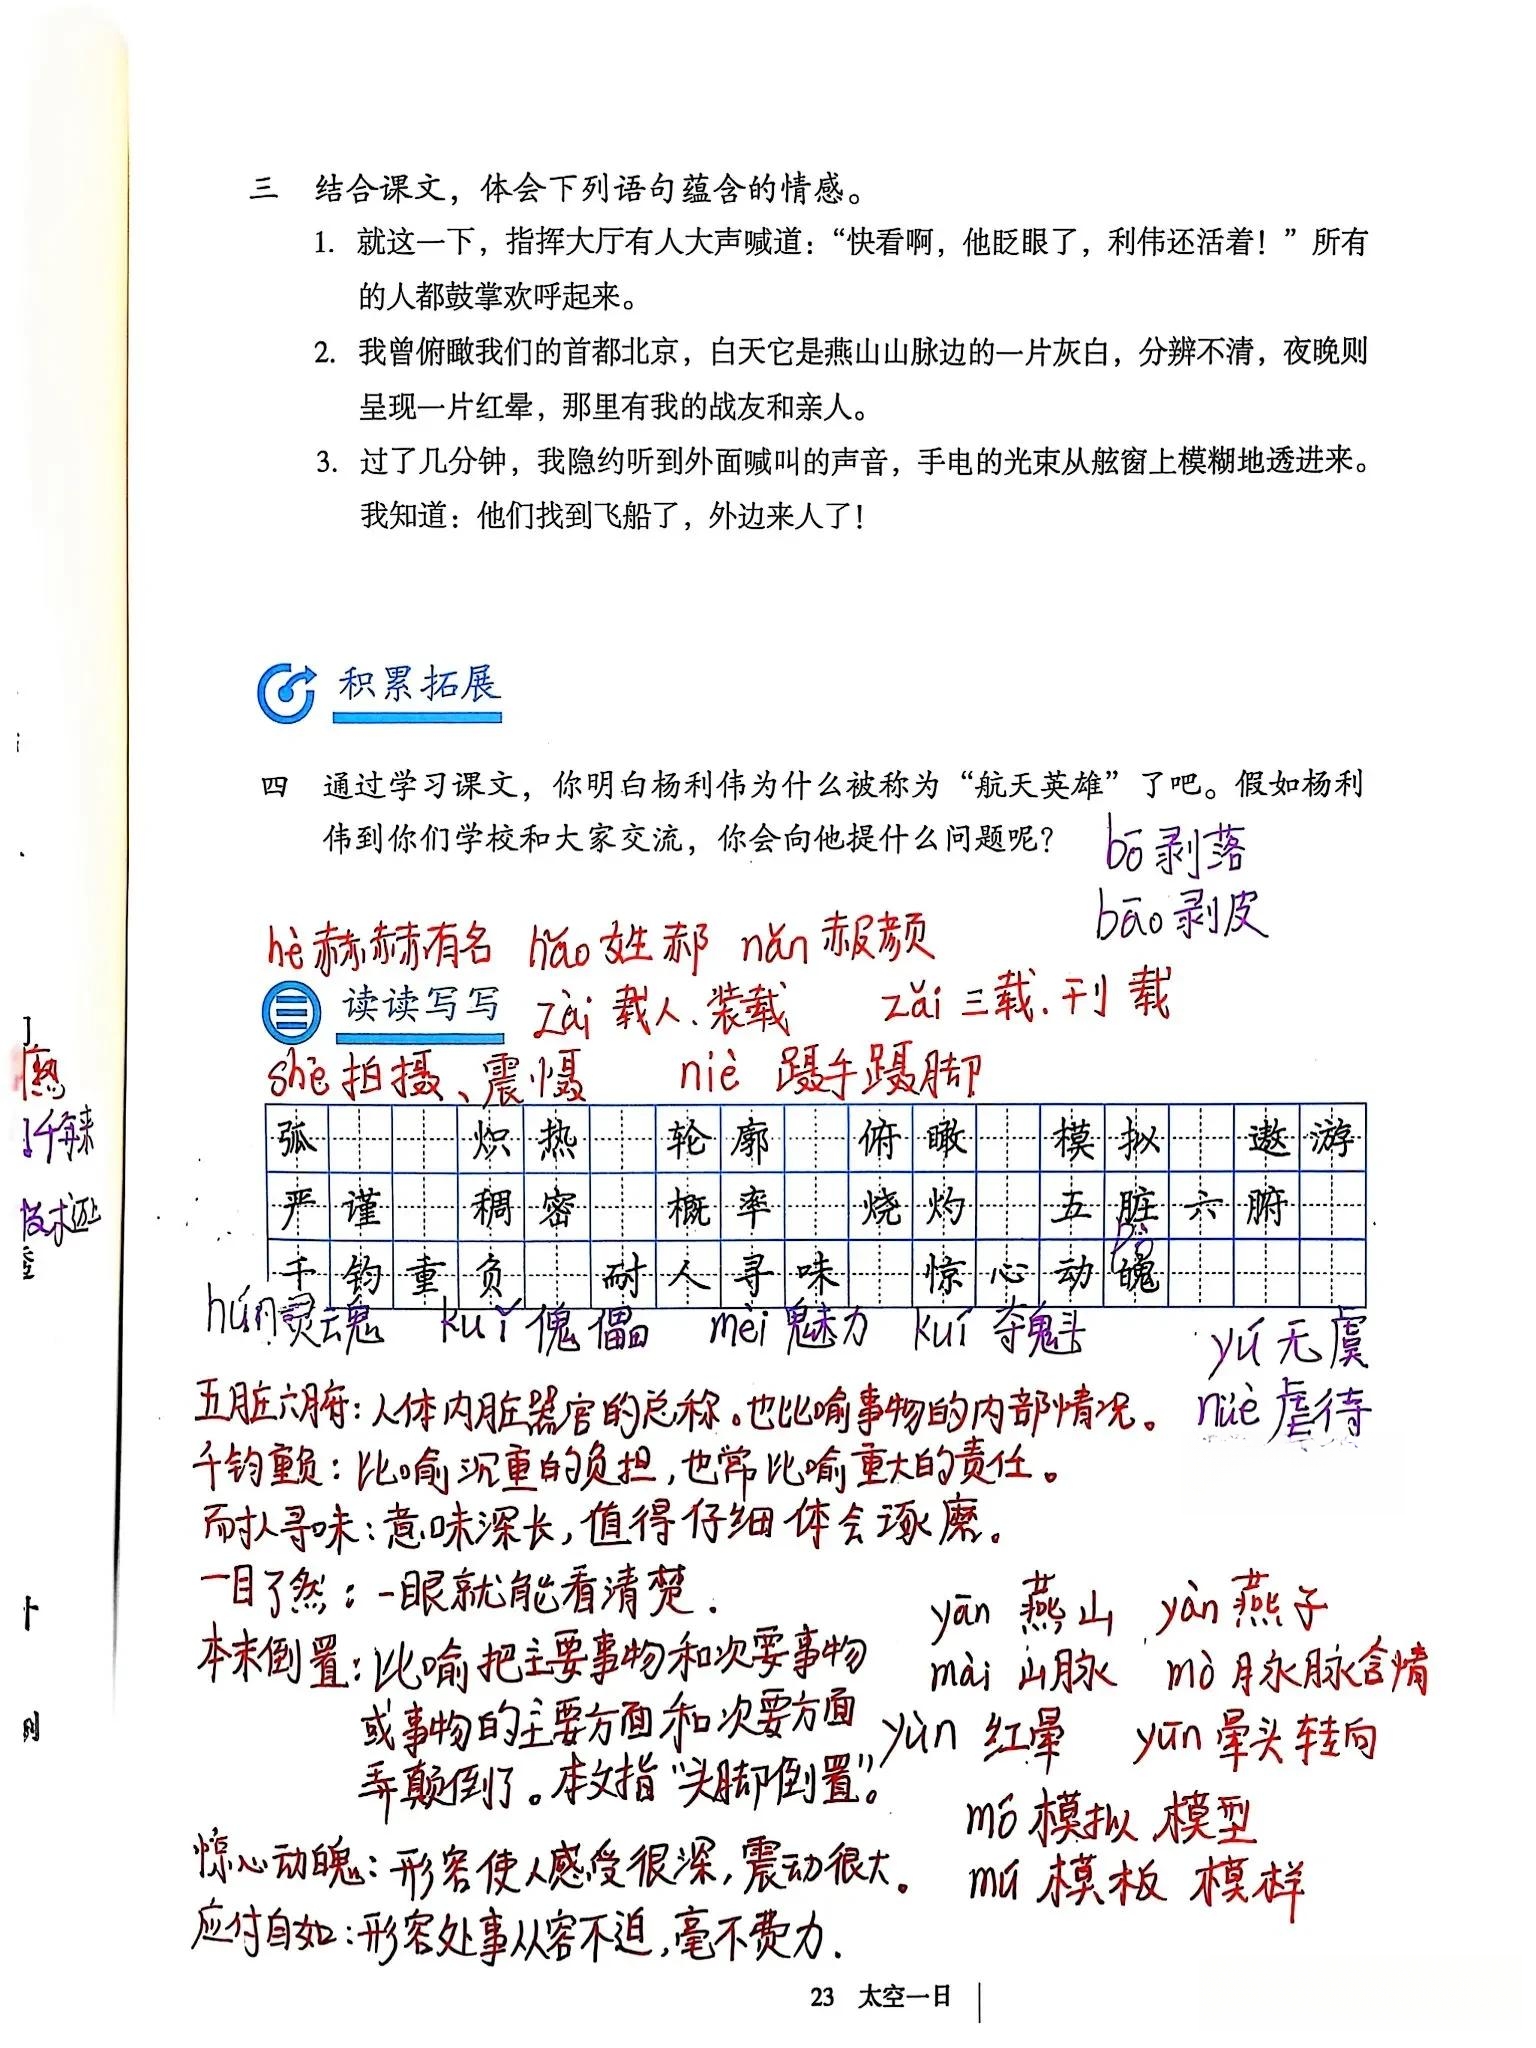 三 结合课文，体会下列语句蕴含的情感。
1. 就这一下，指挥大厅有人大声喊道：“快看啊，他眨眼了，利伟还活着！”所有
的人都鼓掌欢呼起来。
2. 我曾俯瞰我们的首都北京，白天它是燕山山脉边的一片灰白，分辨不清，夜晚则
呈现一片红晕，那里有我的战友和亲人。
3. 过了几分钟，我隐约听到外面喊叫的声音，手电的光束从舷窗上模糊地透进来。
我知道：他们找到飞船了，外边来人了！
积累拓展
四 通过学习课文，你明白杨利伟为什么被称为“航天英雄”了吧。假如杨利
伟到你们学校和大家交流，你会向他提什么问题呢？
bō 剥落
bāo 剥皮
hè 赫赫有名 hǎo 姓郝 nǎn 赧颜
读读写写
zài 载人、装载 zǎi 三载、刊载
shè 拍摄、震慑 niè 蹑手蹑脚
弧 炽热 轮廓 俯瞰 模拟 遨游
严谨 稠密 概率 烧灼 五脏六腑
pò
千钧重负 耐人寻味 惊心动魄
hún 灵魂 kuǐ 傀儡 mèi 魅力 kuí 夺魁
yú 无虞
五脏六腑：人体内脏器官的总称。也比喻事物的内部情况。
nüè 虐待
千钧重负：比喻沉重的负担，也常比喻重大的责任。
耐人寻味：意味深长，值得仔细体会琢磨。
一目了然：一眼就能看清楚．
yān 燕山 yàn 燕子
本末倒置：比喻把主要事物和次要事物
mài 山脉 mò 脉脉含情
或事物的主要方面和次要方面
yùn 红晕 yūn 晕头转向
弄颠倒了。本文指“头脚倒置”。
mó 模拟 模型
惊心动魄：形容使人感受很深，震动很大。
mú 模板 模样
应付自如：形容处事从容不迫，毫不费力．
23 太空一日